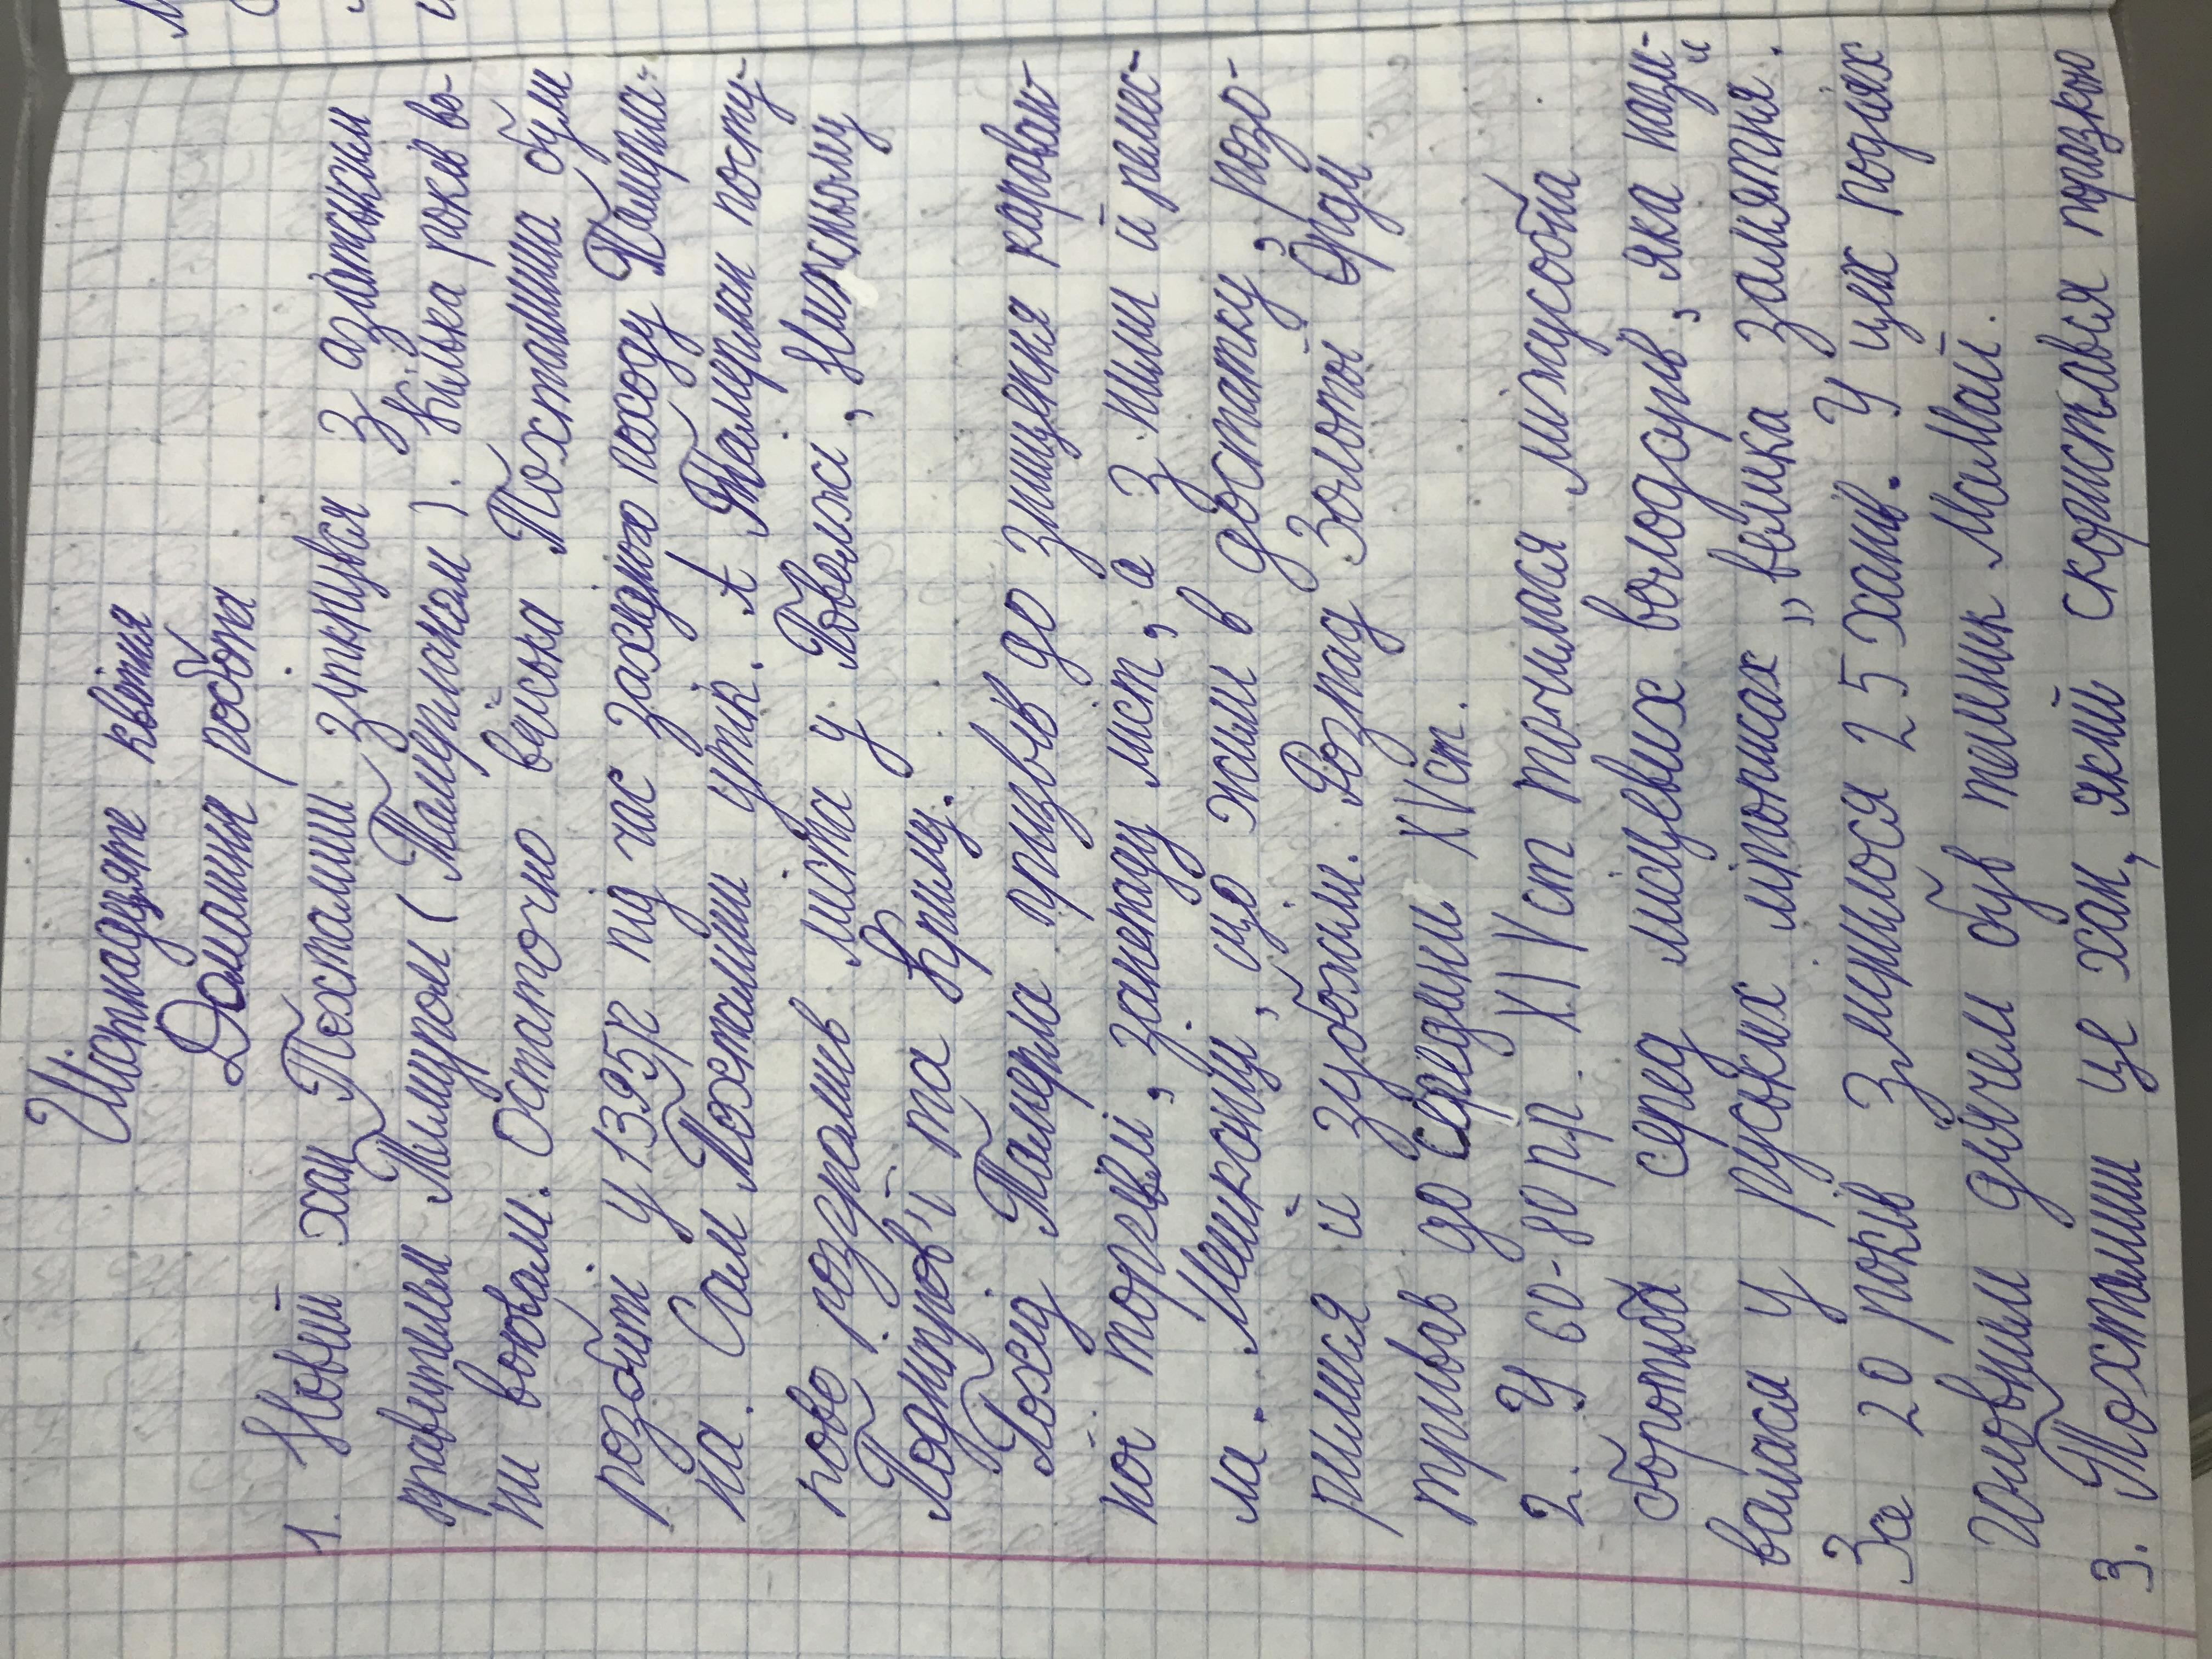 Шістнадцяте квітня
Домашня робота
1. Новий хан Тохтамиш зіткнувся з азіатським
правителем Тимуром (Тамерланом). Кілька років во-
ни воювали. Остаточно війська Тохтамиша були
розбиті у 1395р під час західного походу Тамерла-
на. Сам Тохтамиш утік. А Тамерлан посту-
пово розгромив міста у Поволжі, Нижньому
Подніпров'ї та Криму.
Похід Тамерла призвів до знищення караван-
ної торгівлі, занепаду міст, а з ними й ремес-
ла. Мешканці, що жили в достатку, розо-
рилися й зубожіли. Розпад Золотої Орди
тривав до середини XVст.
2. У 60-80 рр. XIV ст точилася міжусобна
боротьба серед місцевих володарів, яка нази-
валася у руських літописах „велика замятня”.
За 20 років змінилося 25 ханів. У цих подіях
головним діячем був темник Мамай.
3. Тохтамиш це хан, який скористався поразкою